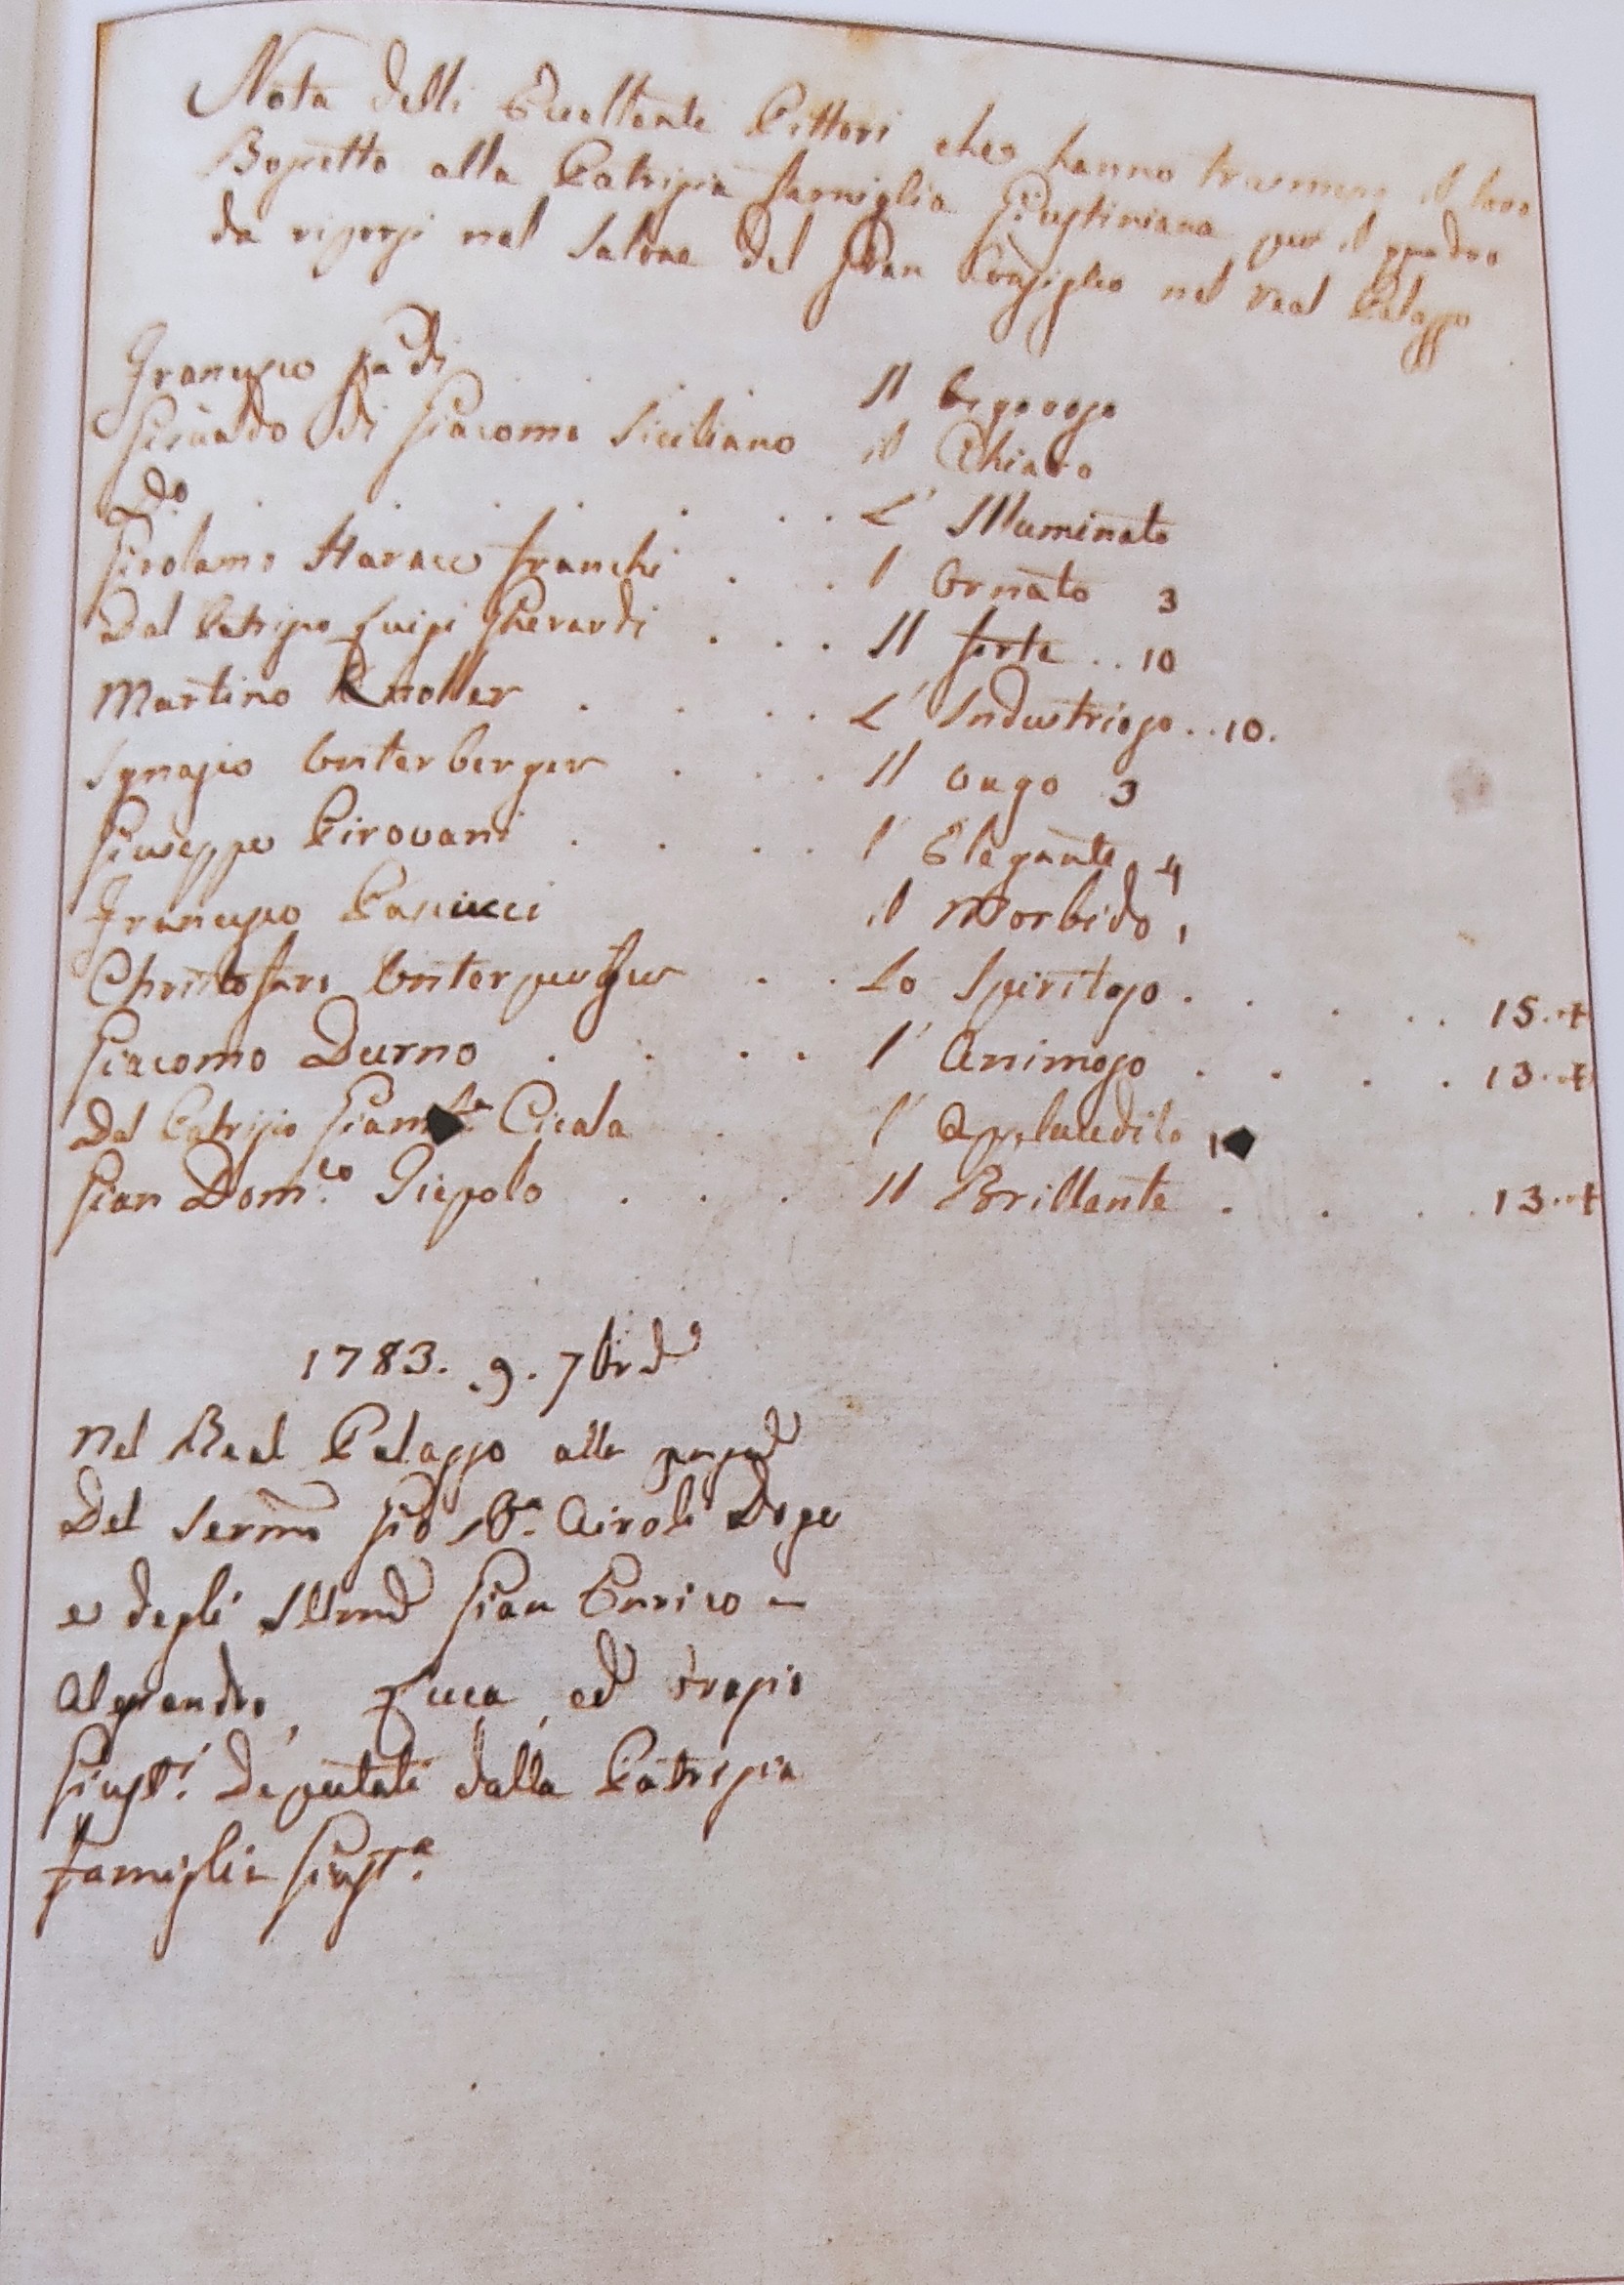 Nota delli Eccellenti Pittori che hanno trasmesso il loro
Bozzetto alla Patrizia famiglia Giustiniana per il quadro
da riporsi nel Salone del Gran Consiglio nel Real Palazzo
Francesco
di Giacomo Siciliano
do
Girolamo franchi
Dal Patrizio Luigi Gherardi
Martino Knoller
Ignazio Unterberger
Giuseppe Pirovani
Francesco
Christofaro Unterperger
Giacomo Durno
Dal Patrizio Giam Cicala
Gian Dom.co Tiepolo
Il
il Chiaro
L' Illuminato
l' Ornato 3
Il forte .. 10
L' Industrioso .. 10.
Il vago 3
l' Elegante 4
il Morbido 1
Lo Spiritoso . . . . . 15.. +
l' Animoso . . . . 13.. +
l' Applaudito 1
Il Brillante . . . . 13.. +
1783. 9. 7bre
Nel Real Palazzo alla
Del Sermo Gio Ba. Airoli Doge
e degli Gian Enrico
Alessandro, Luca, ed Orazio
Giusti. Deputati dalla Patrizia
famiglia Giusta.